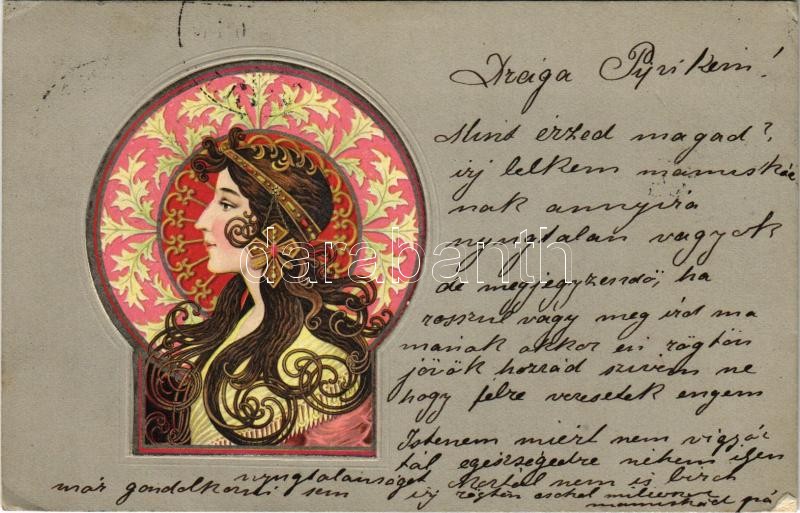 Drága Pyrikem!
Mint érzed magad?
irj lelkem mamuskád
nak annyira
nyugtalan vagyok
de megjegyzendő, ha
rosszul vagy meg ird ma
mának akkor én rögtön
jövök hozzád szivem ne
hogy félre vezesetek engem
Istenem miért nem vigyáz
tál egészségedre nekem ilyen
nyugtalanságot
már gondolkozni sem nem is birok
irj rögtön csókol milliószor
mamuskád
darabanth